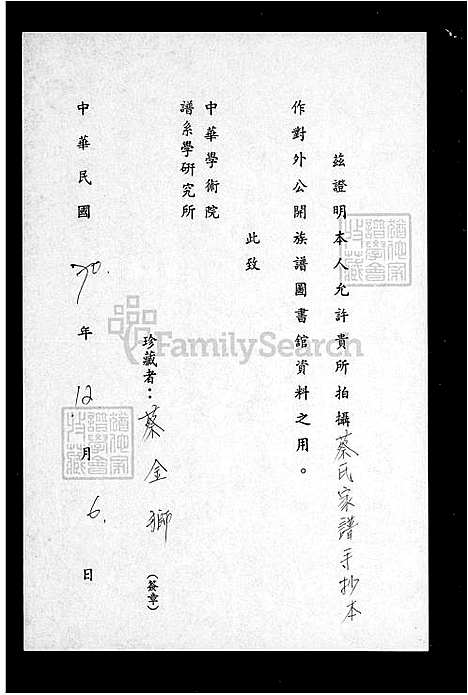 茲證明本人允許貴所拍攝蔡氏家譜手抄本
作對外公開族譜圖書館資料之用。
此致
中華學術院
譜系學研究所
珍藏者：蔡金獅（簽章）
中華民國70.年12.月6.日
FamilySearch